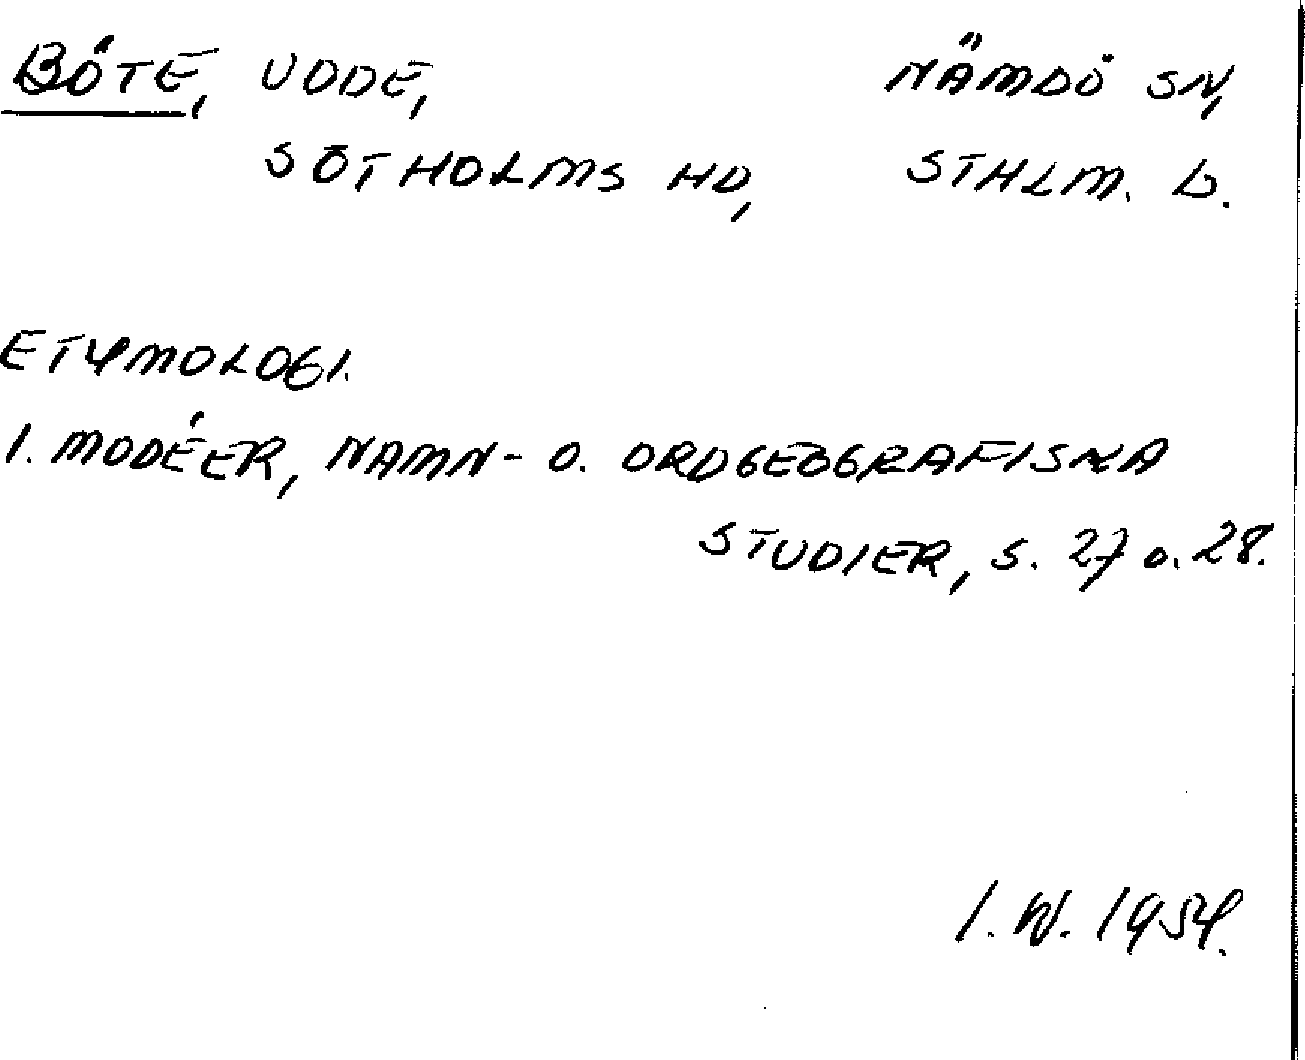 BÖTE, UDDE, NÄMDÖ SN,
SOTHOLMS HD, STHLM. L.
ETYMOLOGI.
I. MODÉER, NAMN- O. ORDGEOGRAFISKA
STUDIER, S. 27 o. 28.
I. W. 1954.